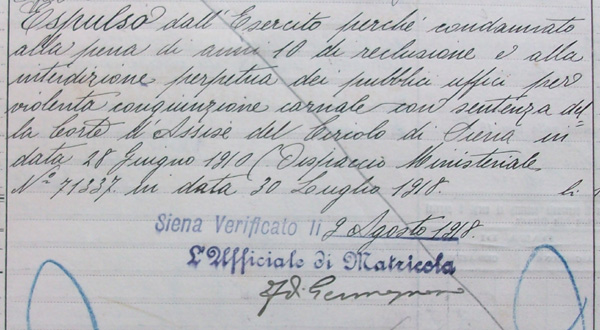 Espulso dall'Esercito perché condannato
alla pena di anni 10 di reclusione e alla
interdizione perpetua dei pubblici uffici per
violenta congiunzione carnale con sentenza del
la Corte d'Assise del Circolo di Siena in
data 28 Giugno 1910 (Dispaccio Ministeriale
N° 71337 in data 30 Luglio 1918.
Siena Verificato li 9 Agosto 1918.
L'Ufficiale di Matricola